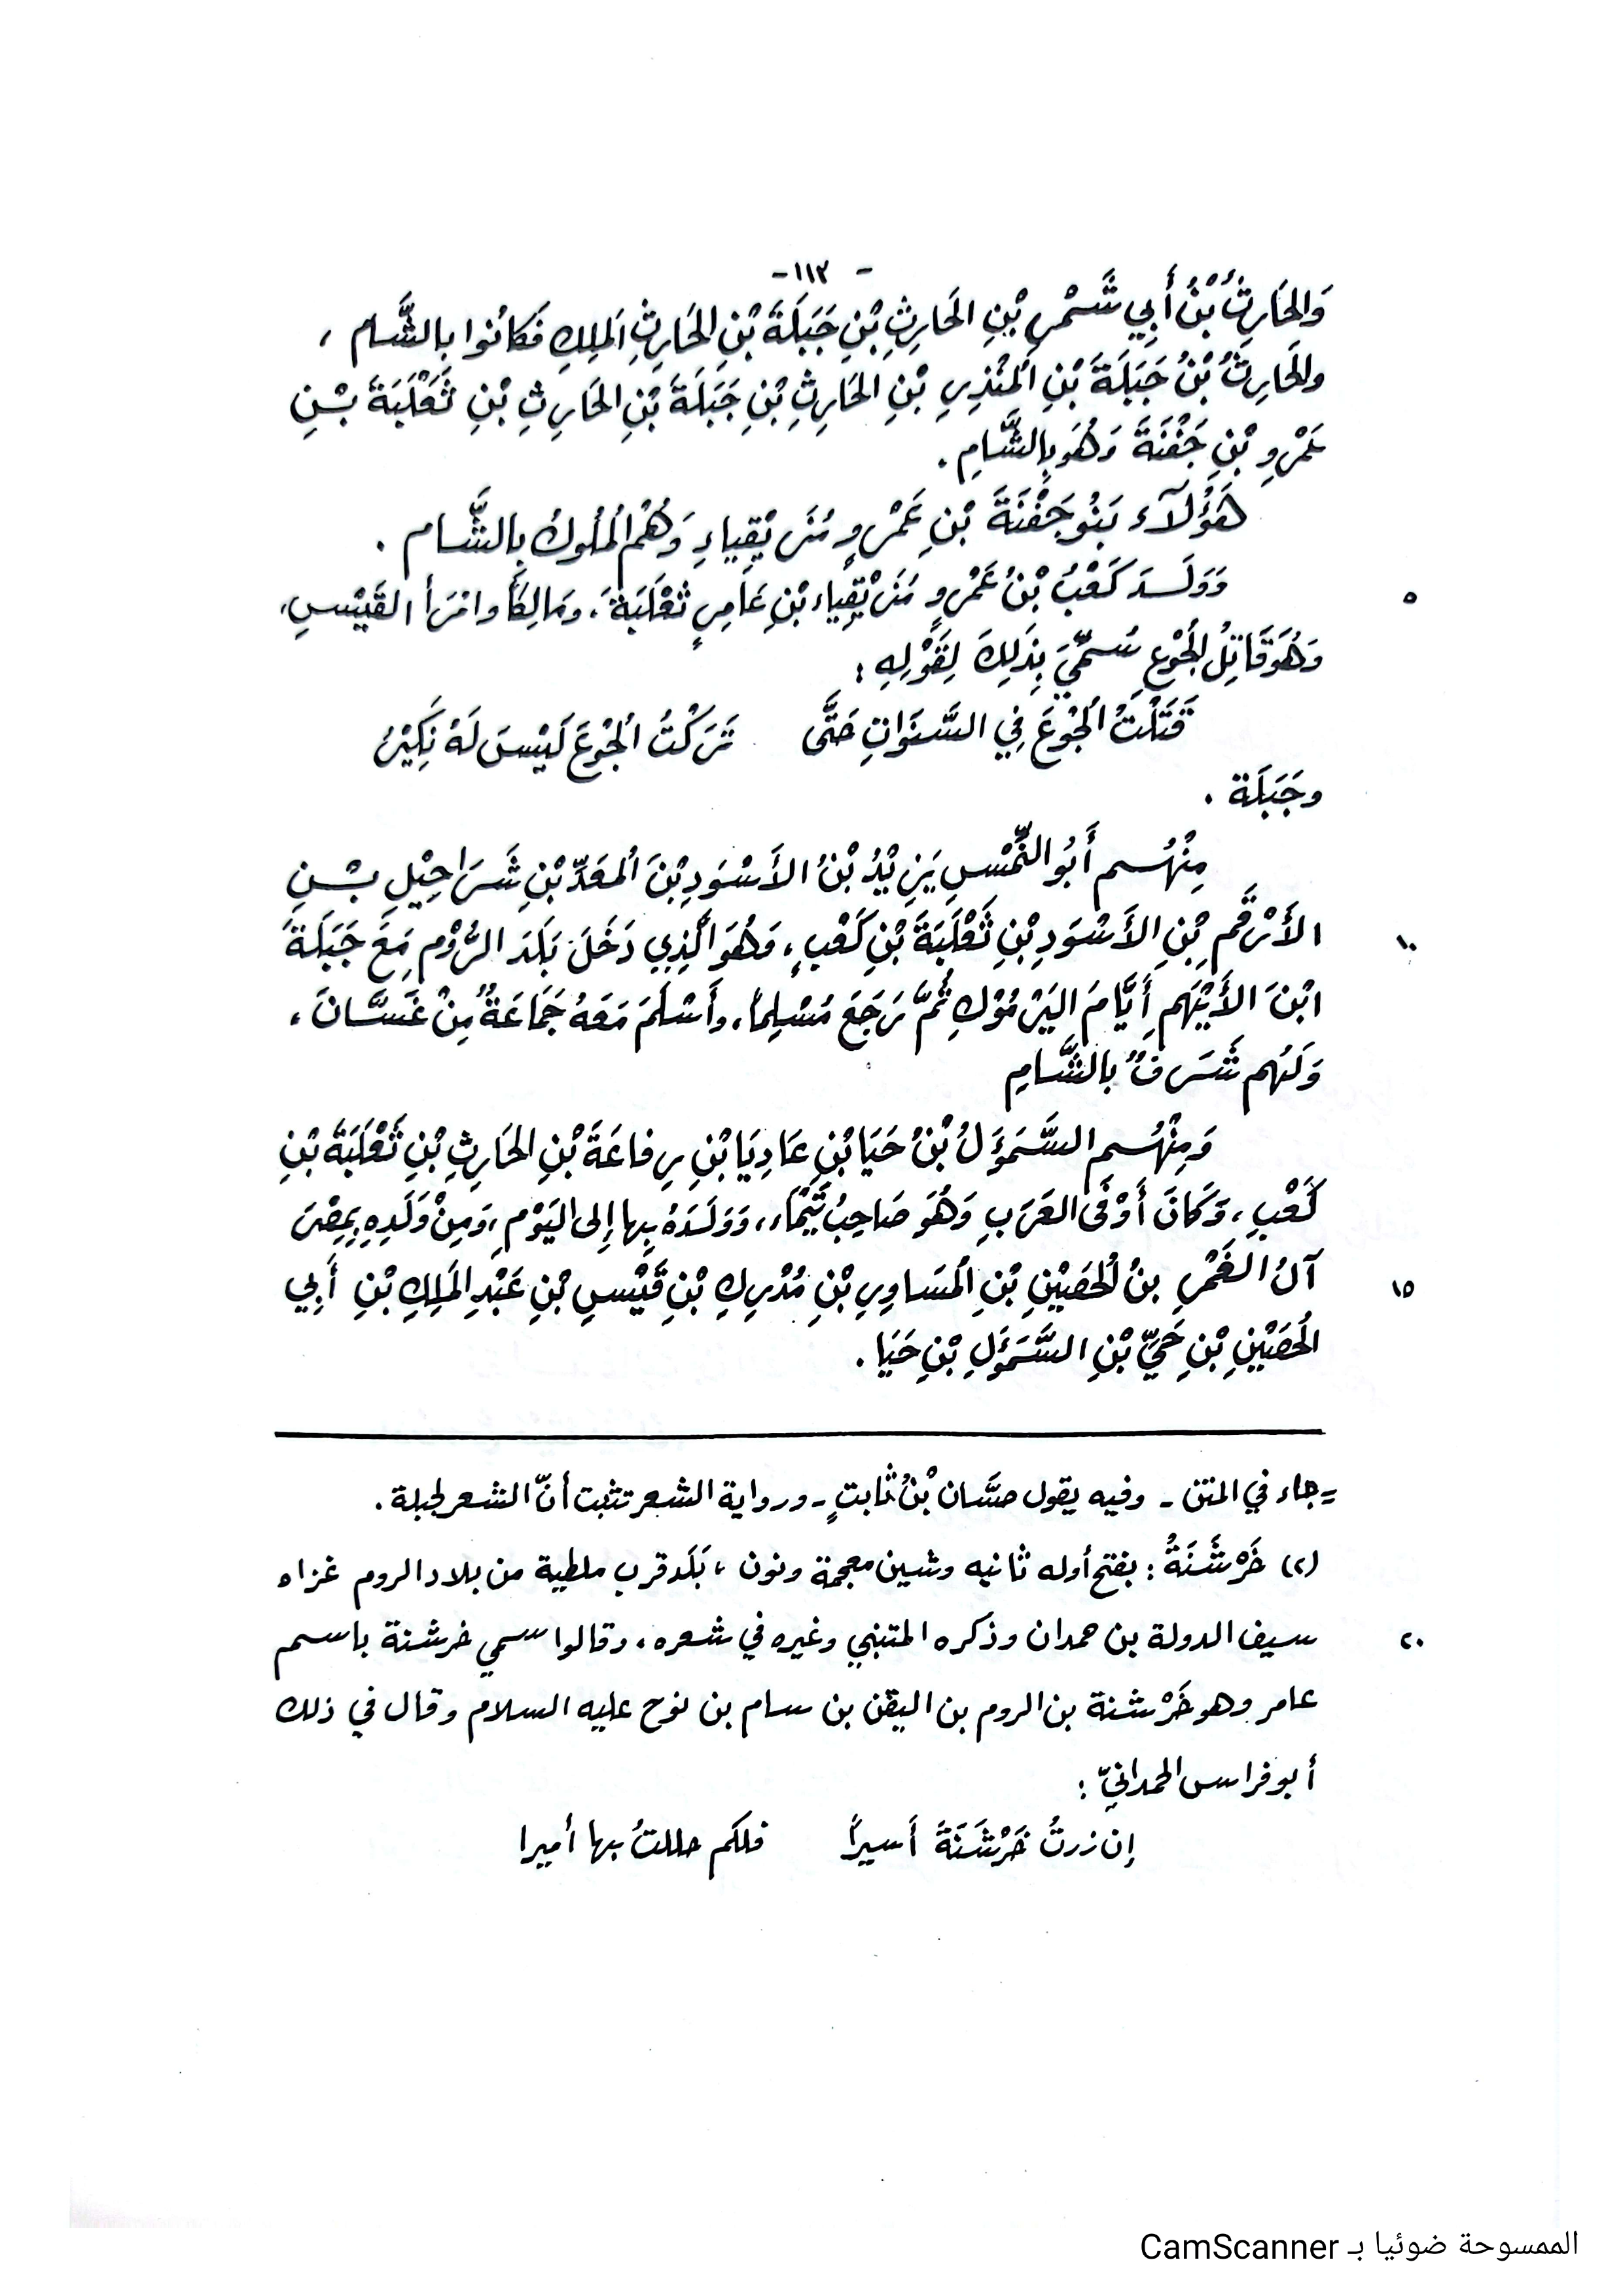 - ١١٣ -
وَالحَارِثُ بْنُ أَبِي شَمْرِ بْنِ الحَارِثِ بْنِ جَبَلَةَ بْنِ الحَارِثِ المَلِكِ فَكَانُوا بِالشَّامِ ،
والحَارِثُ بْنُ جَبَلَةَ بْنِ المُنْذِرِ بْنِ الحَارِثِ بْنِ جَبَلَةَ بْنِ الحَارِثِ بْنِ ثَعْلَبَةَ بْنِ
عَمْرِو بْنِ جَفْنَةَ وَهُوَ بِالشَّامِ .
هَؤُلَآءِ بَنُو جَفْنَةَ بْنِ عَمْرٍو مُزَيْقِياءِ وَهُمُ المُلُوكُ بِالشَّامِ .
وَوَلَدَ كَعْبُ بْنُ عَمْرٍو مُزَيْقِياءِ بْنِ عَامِرٍ ثَعْلَبَةَ ، ومَالِكاً وامْرَأَ القَيْسِ ،
٥
وَهُوَ قَاتِلُ الجُوْعِ سُمِّيَ بِذَلِكَ لِقَوْلِهِ :
قَتَلْتُ الجُوْعَ فِي السَّنَوَاتِ حَتَّى تَرَكْتُ الجُوْعَ لَيْسَ لَهُ نَكِيْرُ
وجَبَلَة .
مِنْهُم أَبُو النِّمْسِ يَزِيْدُ بْنُ الأَسْوَدِ بْنَ المَعَدِّ بْنِ شَرَاحِيْلِ بْنِ
الأَرْقَمِ بْنِ الأَسْوَدِ بْنِ ثَعْلَبَةَ بْنِ كَعْبٍ ، وَهُوَ الَّذِي دَخَلَ بَلَدَ الرُّوْمِ مَعَ جَبَلَةَ
١٠
ابْنَ الأَيْهَمِ أَيَّامَ اليَرْمُوْكِ ثُمَّ رَجَعَ مُسْلِماً ، وأَسْلَمَ مَعَهُ جَمَاعَةٌ مِنْ غَسَّانَ ،
وَلَهُم شَرَفٌ بِالشَّامِ
وَمِنْهُم السَّمَوْؤَلُ بْنُ حَيَا بْنِ عَادِيَا بْنِ رِفاعَةَ بْنِ الحَارِثِ بْنِ ثَعْلَبَةَ بْنِ
كَعْبٍ ، وَكَانَ أَوْفَى العَرَبِ وَهُوَ صَاحِبُ تَيْمَاءَ ، وَوَلَدَهُ بِها إِلى اليَوْمِ ، وَمِنْ وَلَدِهِ بِمِصْرَ
آلُ الغَمْرِ بنُ الحُصَيْنِ بْنِ المُسَاوِرِ بْنِ مُدْرِكِ بْنِ قَيْسِ بْنِ عَبْدِ المَلِكِ بْنِ أَبِي
١٥
الحُصَيْنِ بْنِ حَيِّ بْنِ السَّمَوْؤَلِ بْنِ حَيَا .
= جاء في المتن - وفيه يقول حسَّان بْنُ ثابتٍ - ورواية الشعر تثبت أنّ الشعر لجبلة .
(٢) خَرْشَنَةُ : بفتح أوله ثانيه وشين معجمة ونون ، بَلَد قرب ملطية من بلاد الروم غزاه
سيف الدولة بن حمدان وذكره المتنبي وغيره في شعره ، وقالوا سمي خرشنة باسم
٢٠
عامر وهو خَرْشنة بن الروم بن اليقن بن سام بن نوح عليه السلام وقال في ذلك
أبو فراس الحمدانيّ :
إن زرتُ خَرْشَنَةَ أَسيراً فلكم حللتُ بها أميرا
الممسوحة ضوئيا بـ CamScanner